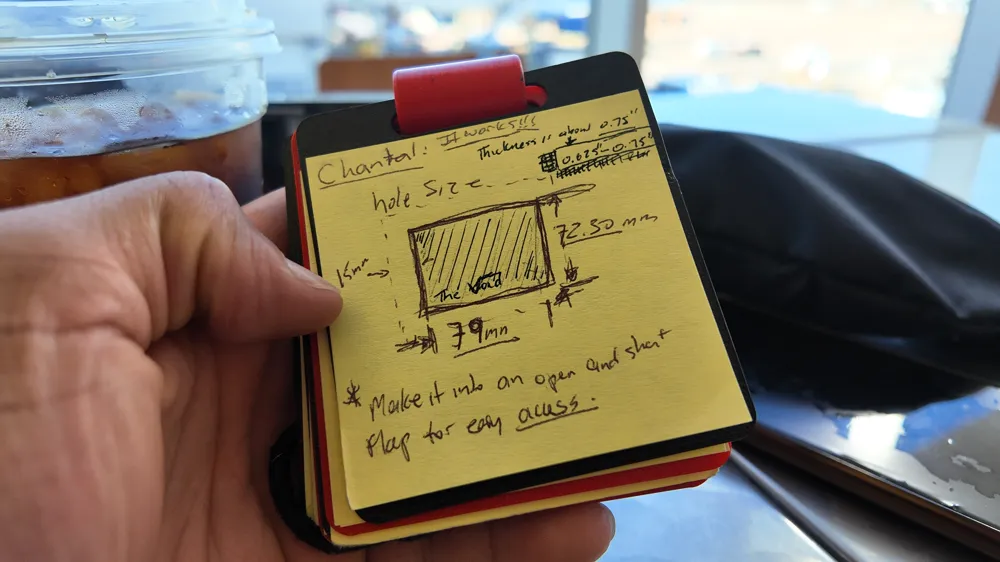 Chantal: It works!!!
Thickness" about 0.75"
0.625"-0.75"
hole size
72.50 mm
15mm
The Void
79mm
* Make it into an open and shut
flap for easy acuss.